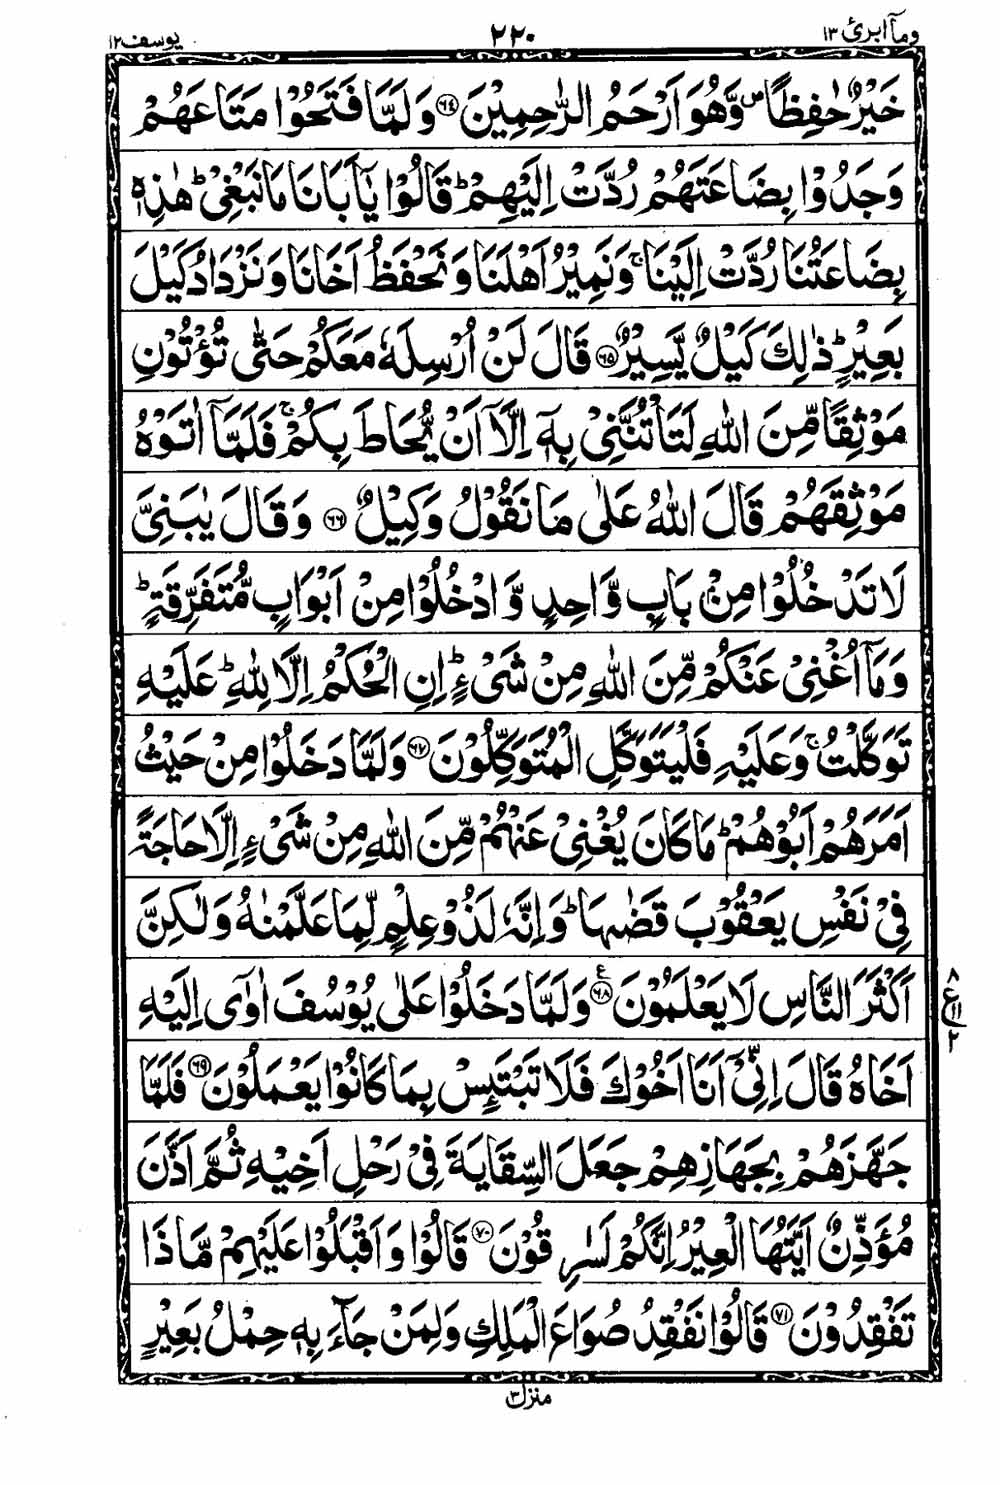 ومآ ابرئ ١٣ ٢٢٠ يوسف ١٢
خَيْرٌ حٰفِظًا ۪ وَّهُوَ اَرْحَمُ الرّٰحِمِيْنَ ﴿٦٤﴾ وَلَمَّا فَتَحُوْا مَتَاعَهُمْ
وَجَدُوْا بِضَاعَتَهُمْ رُدَّتْ اِلَيْهِمْ ؕ قَالُوْا يٰٓاَبَانَا مَا نَبْغِيْ ؕ هٰذِهٖ
بِضَاعَتُنَا رُدَّتْ اِلَيْنَا ۚ وَنَمِيْرُ اَهْلَنَا وَنَحْفَظُ اَخَانَا وَنَزْدَادُ كَيْلَ
بَعِيْرٍ ؕ ذٰلِكَ كَيْلٌ يَّسِيْرٌ ﴿٦٥﴾ قَالَ لَنْ اُرْسِلَهٗ مَعَكُمْ حَتّٰى تُؤْتُوْنِ
مَوْثِقًا مِّنَ اللّٰهِ لَتَاْتُنَّنِيْ بِهٖٓ اِلَّآ اَنْ يُّحَاطَ بِكُمْ ۚ فَلَمَّآ اٰتَوْهُ
مَوْثِقَهُمْ قَالَ اللّٰهُ عَلٰى مَا نَقُوْلُ وَكِيْلٌ ﴿٦٦﴾ وَقَالَ يٰبَنِيَّ
لَا تَدْخُلُوْا مِنْۢ بَابٍ وَّاحِدٍ وَّادْخُلُوْا مِنْ اَبْوَابٍ مُّتَفَرِّقَةٍ ؕ
وَمَآ اُغْنِيْ عَنْكُمْ مِّنَ اللّٰهِ مِنْ شَيْءٍ ؕ اِنِ الْحُكْمُ اِلَّا لِلّٰهِ ؕ عَلَيْهِ
تَوَكَّلْتُ ۚ وَعَلَيْهِ فَلْيَتَوَكَّلِ الْمُتَوَكِّلُوْنَ ﴿٦٧﴾ وَلَمَّا دَخَلُوْا مِنْ حَيْثُ
اَمَرَهُمْ اَبُوْهُمْ ؕ مَا كَانَ يُغْنِيْ عَنْهُمْ مِّنَ اللّٰهِ مِنْ شَيْءٍ اِلَّا حَاجَةً
فِيْ نَفْسِ يَعْقُوْبَ قَضٰىهَا ؕ وَاِنَّهٗ لَذُوْ عِلْمٍ لِّمَا عَلَّمْنٰهُ وَلٰكِنَّ
اَكْثَرَ النَّاسِ لَا يَعْلَمُوْنَ ﴿٦٨﴾ ع وَلَمَّا دَخَلُوْا عَلٰى يُوْسُفَ اٰوٰٓى اِلَيْهِ
٨ ع ١١ ٢
اَخَاهُ قَالَ اِنِّيْٓ اَنَا اَخُوْكَ فَلَا تَبْتَىِٕسْ بِمَا كَانُوْا يَعْمَلُوْنَ ﴿٦٩﴾ فَلَمَّا
جَهَّزَهُمْ بِجَهَازِهِمْ جَعَلَ السِّقَايَةَ فِيْ رَحْلِ اَخِيْهِ ثُمَّ اَذَّنَ
مُؤَذِّنٌ اَيَّتُهَا الْعِيْرُ اِنَّكُمْ لَسٰرِقُوْنَ ﴿٧٠﴾ قَالُوْا وَاَقْبَلُوْا عَلَيْهِمْ مَّاذَا
تَفْقِدُوْنَ ﴿٧١﴾ قَالُوْا نَفْقِدُ صُوَاعَ الْمَلِكِ وَلِمَنْ جَآءَ بِهٖ حِمْلُ بَعِيْرٍ
منزل ٣